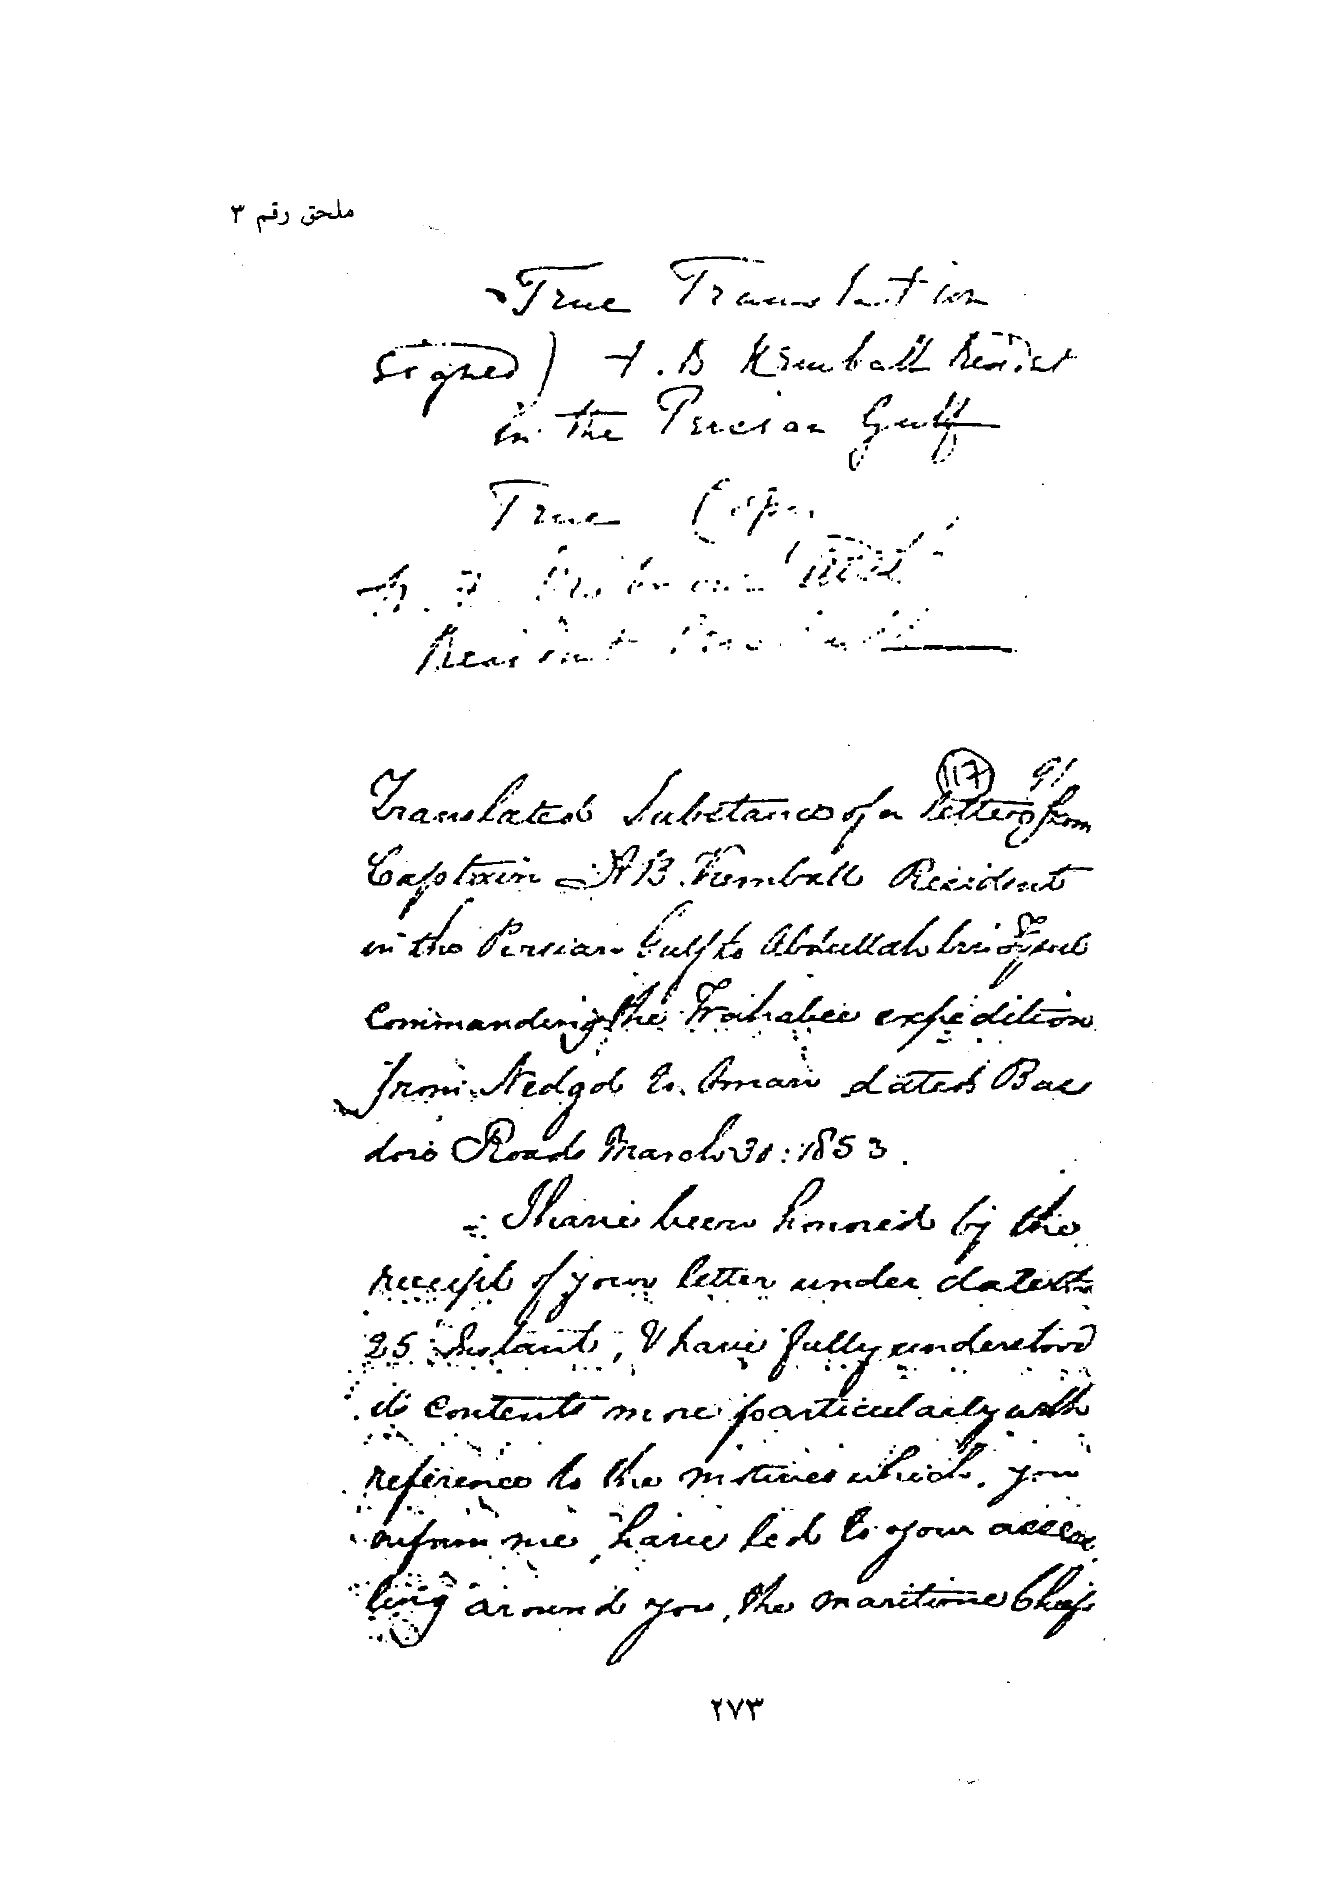 ملحق رقم ٣
True Translation
signed) A. B Kemball Resident
in the Persian Gulf
True Copy
Resident
117 91
Translated Substance of a letter from
Captain A B. Kemball Resident
in the Persian Gulf to Abdullah bin Fysul
commanding the Wahabee expedition
from Nedgd to Oman dated Bas
dore Roads March 31: 1853.
I have been honored by the
receipt of your letter under date the
25 Instant, I have fully understood
its contents more particularly with
reference to the motives which, you
inform me, have led to your assem
bling around you, the maritime Chiefs
٢٧٣